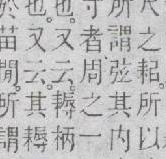 尺之耜。所以
所謂弦其內
寸者周之一
也。又云。耨柄
也。又云。其耨
於苗閒。所謂